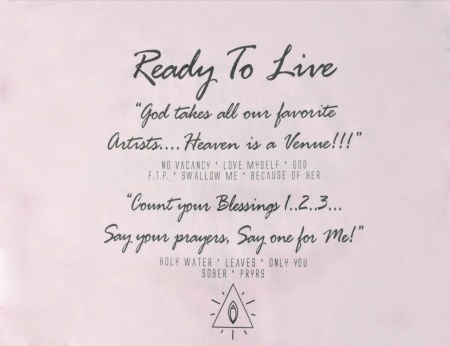 Ready To Live
"God takes all our favorite
Artists.... Heaven is a Venue!!!"
NO VACANCY * LOVE MYSELF * GOD
F.T.P. * SWALLOW ME * BECAUSE OF HER
"Count your Blessings 1..2..3...
Say your prayers, Say one for Me!"
HOLY WATER * LEAVES * ONLY YOU
SOBER * PRYRS